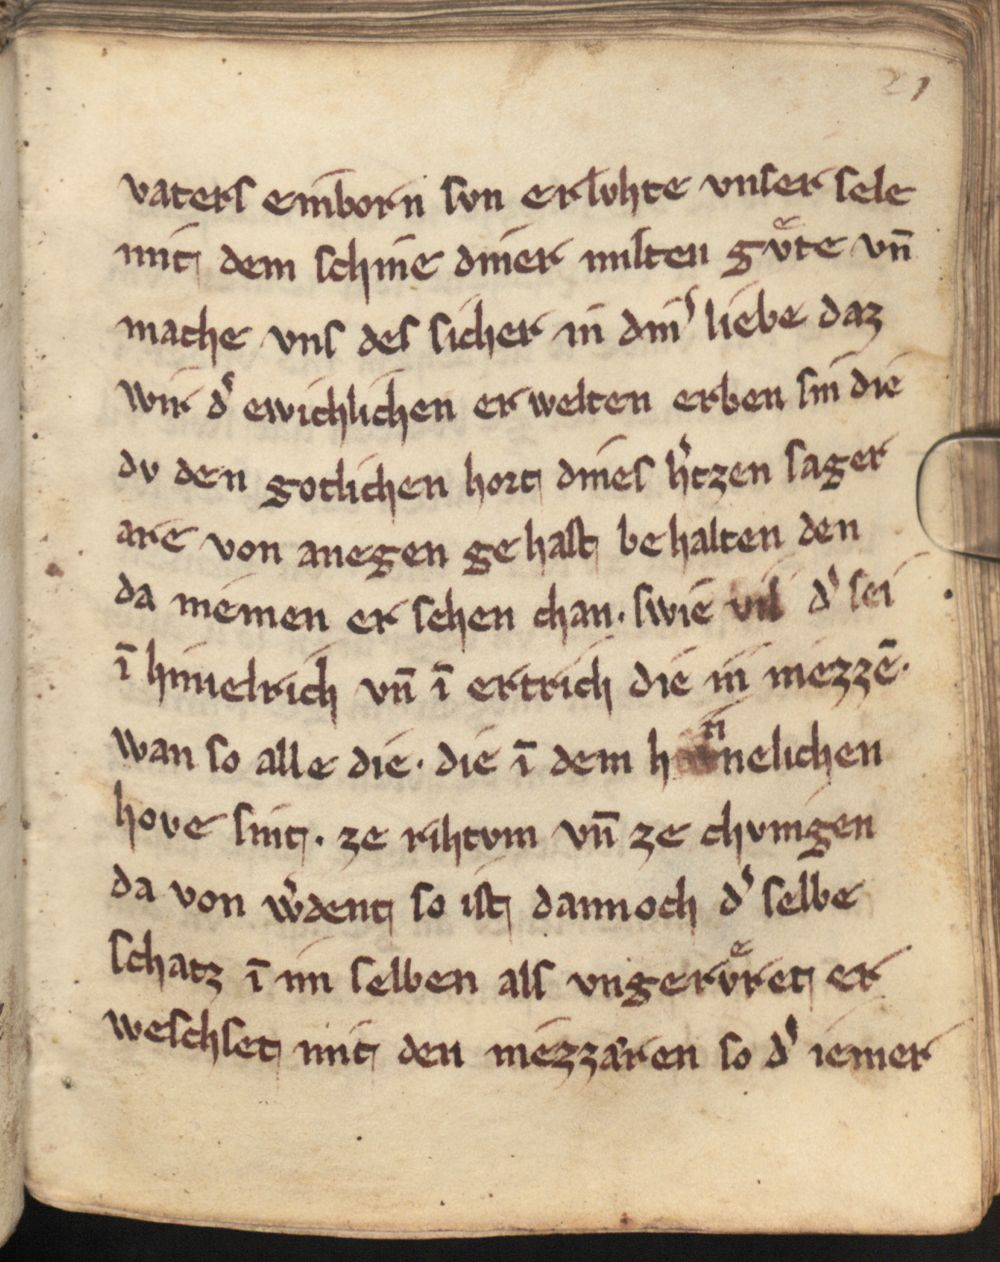 21
vaters einborn svn erlvhte vnser sele
mit dem schine diner milten gvͤte vn̄
mache vns des sicher in dinͬ liebe daz
wir dͬ ewichlichen erwelten erben sin die
dv den gotlichen hort dines hͬtzen sager
are von anegen gehalt behalten den
da niemen ersehen chan. swie vil dͬ sei
ī himelrich vn̄ ī ertrich die in niezzē.
wan so alle die. die ī dem nelichen
hove sint. ze rihtvm vn̄ ze chvnigen
da von wͬdent so ist dannoch dͬ selbe
schatz ī im selben als vngervͤret er
weschset mit den niezzaͤren so dͬ iemer